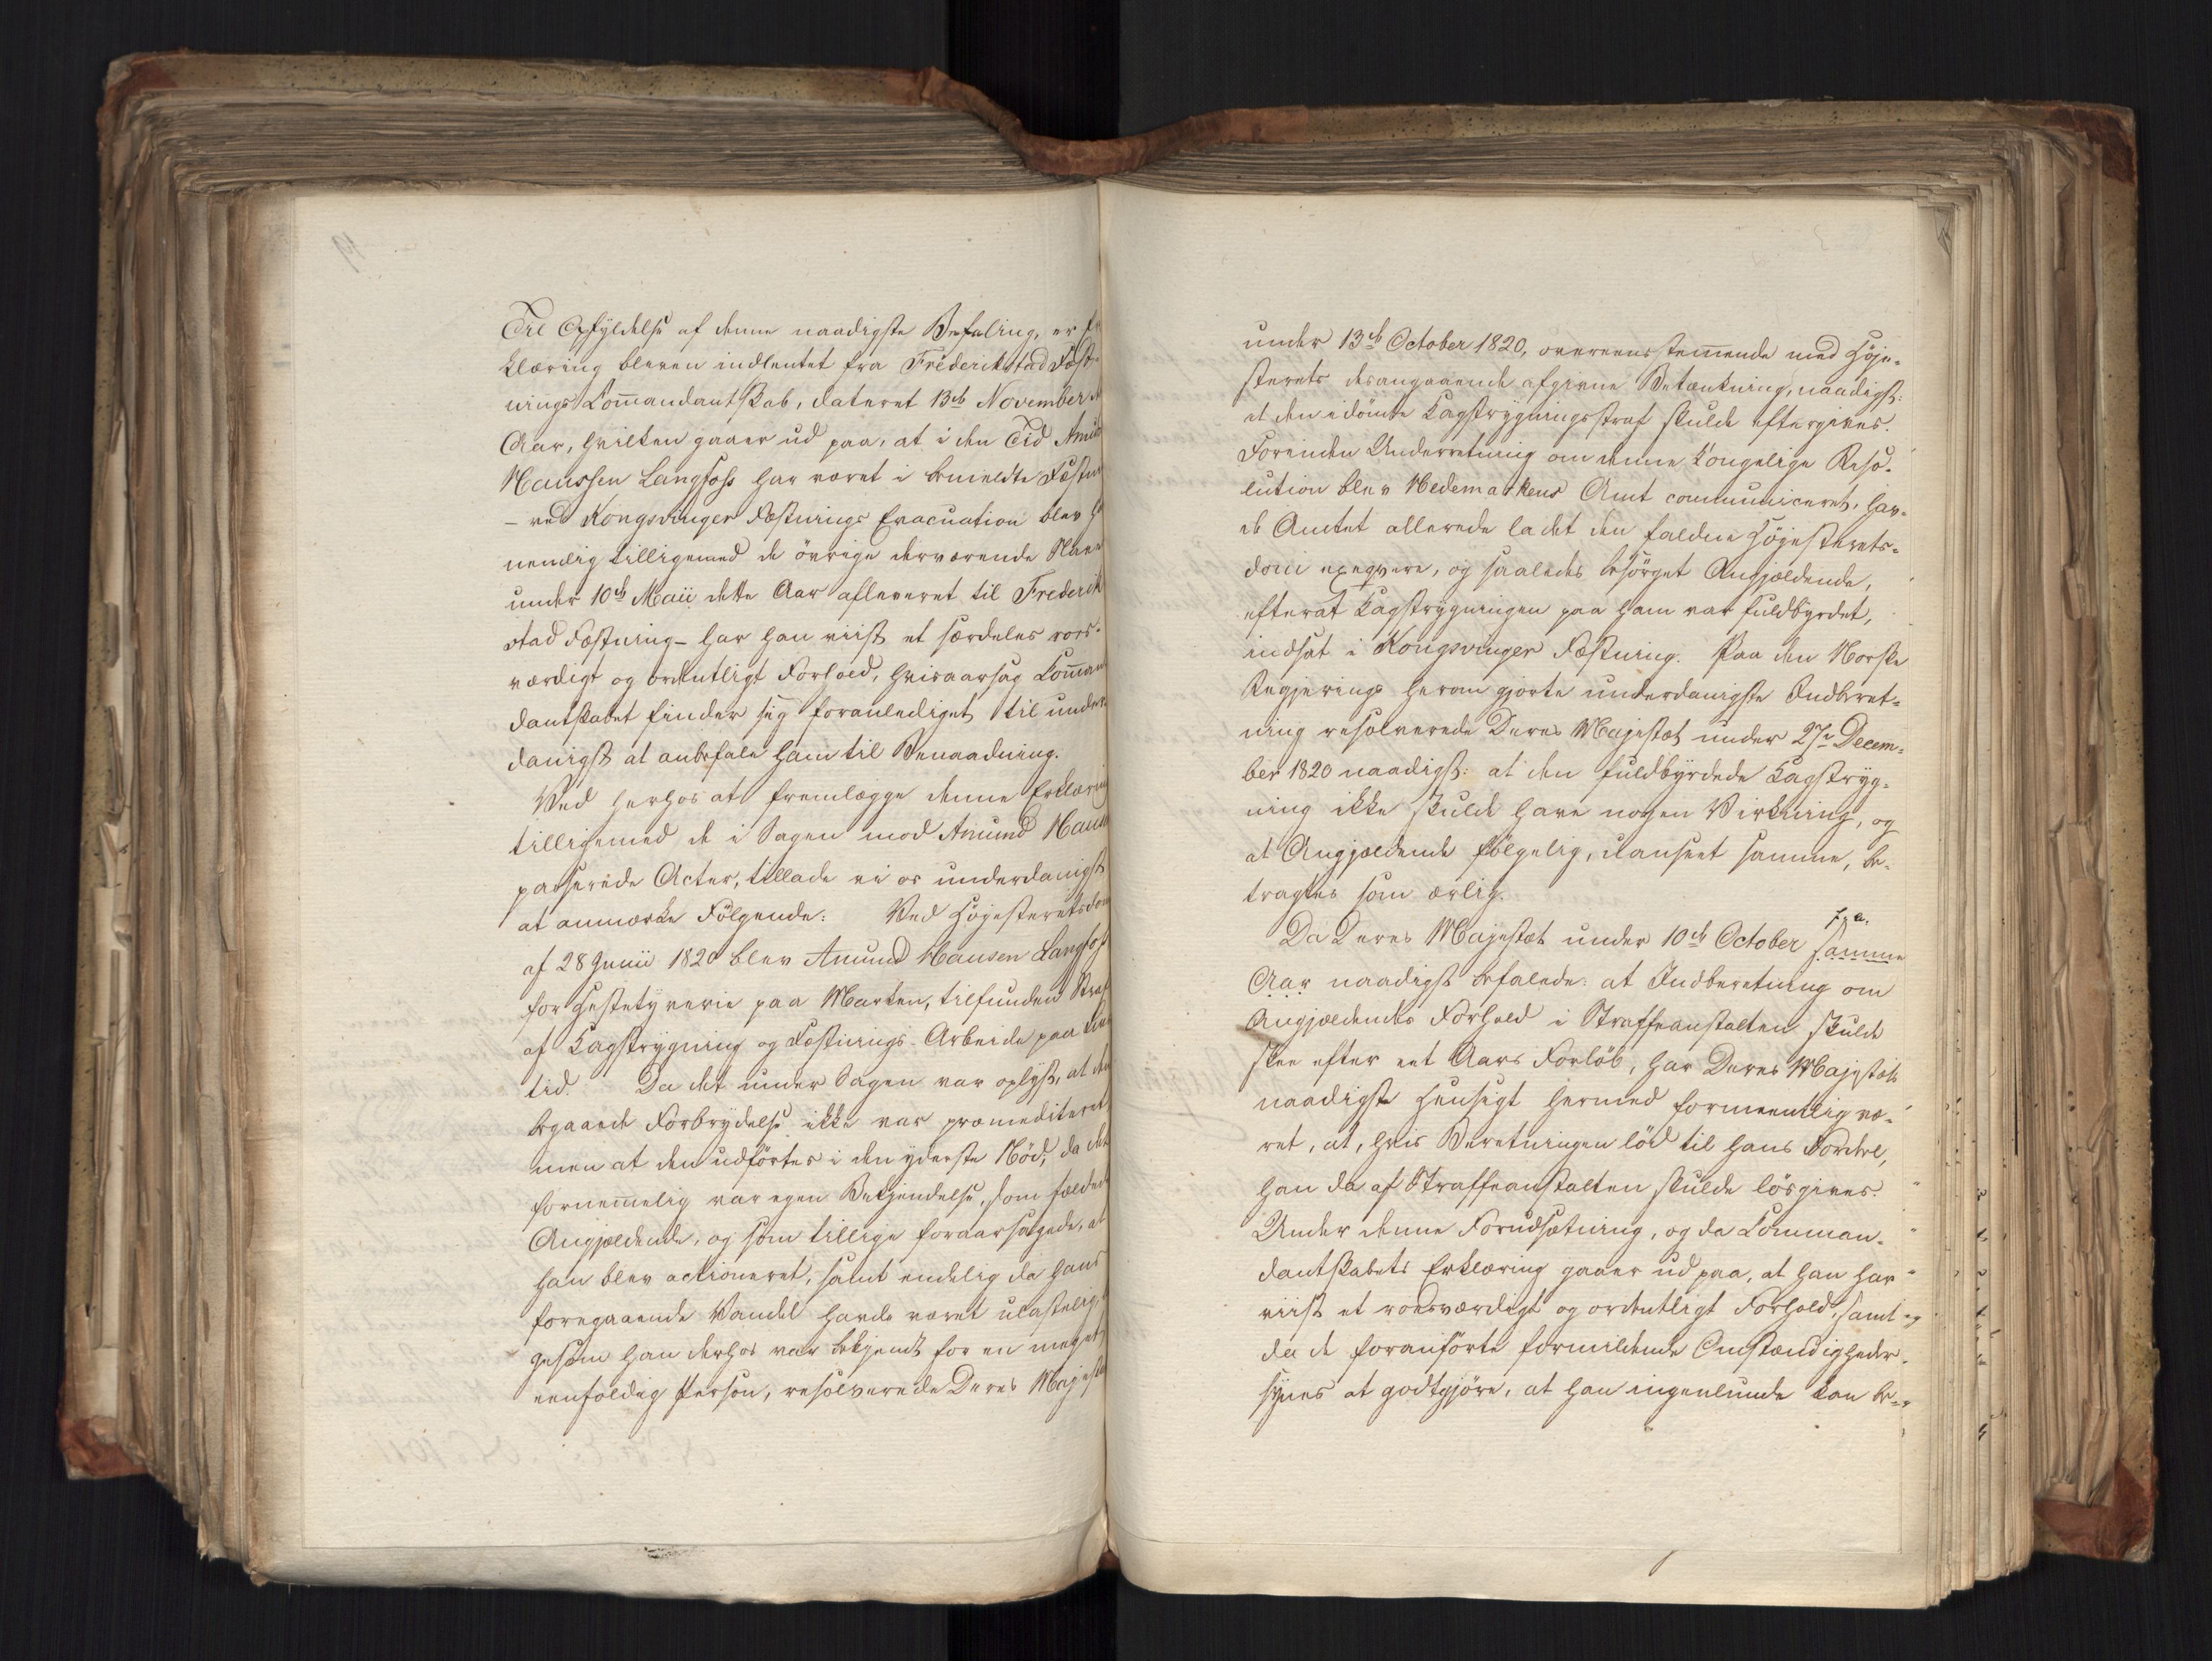 Til Opfyldelse af denne naadigste Befaling, er
klæring bleven indhentet fra Frederikstad Fæst-
nings Commandantskab, dateret 13de November
Aar, hvilken gaaer ud paa, at i den Tid
Hanssen Langfoss har været i bemeldte
– ved Kongsvinger Fæstnings Evacuation blev
nemlig tilligemed de övrige derværende
under 10de Maii dette Aar afleveret til Frederik
stad Fæstning – har han viist et særdeles roes-
værdigt og ordentligt Forhold, hvisaarsag
dantskabet finder sig foranlediget til under
danigst at anbefale ham til Benaadning.
Ved herhos at fremlægge denne Erklæring
tilligemed de i Sagen mod Amund
passerede Acter, tillade vi os underdanigst
at anmærke Følgende: Ved Höjesteretsdom
af 28 Junii 1820 blev Amund Hansen Langfoss
for Hestetyverie paa Marken, tilfunden Straf
af Kagstrygning og Fæstnings-Arbeide paa
tid. Da det under Sagen var oplyst, at den
begaaede Forbrydelse ikke var præmediteret,
men at den udförtes i den yderste Nöd, da det
fornemmelig var egen Bekjendelse, som fældede
Angjældende, og som tillige foraarsagede, at
han blev actioneret, samt endelig da hans
foregaaende Vandel havde været ulastelig,
gesom han derhos var bekjendt for en meget
eenfoldig Person, resolverede Deres Majestæt
under 13de October 1820, overeensstemmende med Höje-
sterets desangaaende afgivne Betænkning, naadigst:
at den idömte Kagstrygningsstraf skulde eftergives.
Forinden Underretning om denne Kongelige Reso-
lution blev Hedemarkens Amt communiceret, hav-
de Amtet allerede ladet den faldne Höjesterets-
dom exeqvere, og saaledes besörget Angjældende,
efterat Kagstrygningen paa ham var fuldbyrdet,
indsat i Kongsvinger Fæstning. Paa den Norske
Regjerings herom gjorte underdanigste Indberet-
ning resolverede Deres Majestæt under 27de Decem-
ber 1820 naadigst: at den fuldbyrdede Kagstryg-
ning ikke skulde have nogen Virkning, og
at Angjældende fölgelig, uanseet samme, be-
tragtes som ærlig.
f. a.
Da Deres Majestæt under 10de October samme
Aar naadigst befalede: at Indberetning om
Angjældendes Forhold i Straffeanstalten skulde
skee efter eet Aars Forlöb, har Deres Majestæts
naadigste Hensigt hermed formeentlig væ-
ret, at, hvis Beretningen löd til hans Fordeel,
han da af Straffeanstalten skulde lösgives.
Under denne Forudsætning, og da Comman-
dantskabets Erklæring gaaer ud paa, at han har
viist et roesværdigt og ordentligt Forhold, samt
da de foranförte formildende Omstændigheder
synes at godtgjöre, at han ingenlunde kan be-